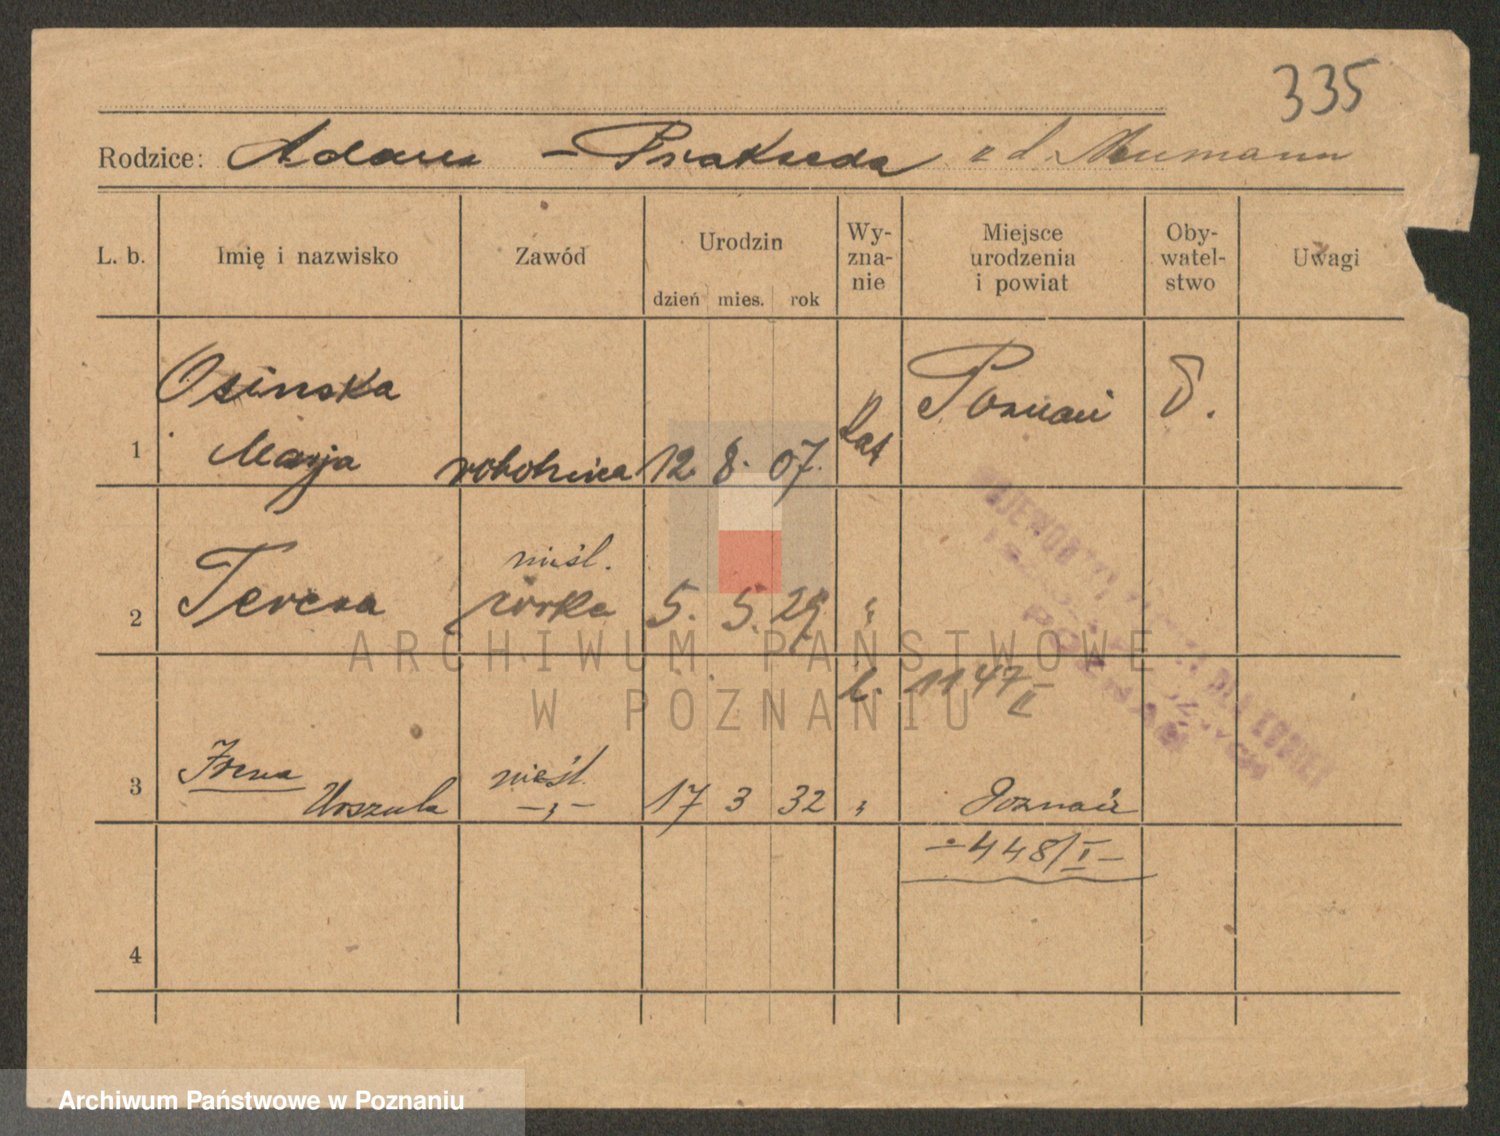 335
Rodzice: Adam - Prakseda z d. Neumann
L. b. Imię i nazwisko Zawód Urodzin dzień mies. rok Wy-zna-nie Miejsce urodzenia i powiat Oby-watel-stwo Uwagi
Osinska Poznań
1 Marja robotnica 12. 8. 07. kat
nieśl.
2 Teresa córka 5. 5. 29 "
ARCHIWUM PAŃSTWOWE
W POZNANIU
L. 1147 II
POZNAŃ
Irena nieśl.
3 Urszula -"- 17 3 32 " Poznań
-448/I-
4
Archiwum Państwowe w Poznaniu